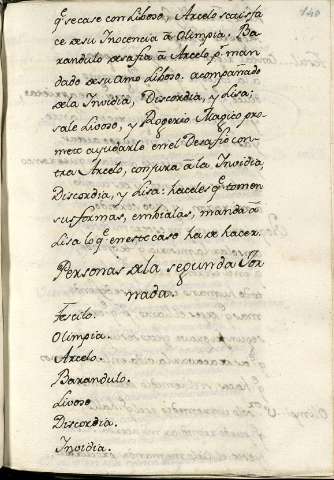 140
q̃ se case con Liboso, Arcelo se satisfa
ce de su Inocencia à Olimpia, Ba
randulo desafia à Arcelo pr. man
dado de su Amo Liboso. acompañado
de la Invidia, Discordia, y Lisa;
sale Livoso, y Rogerio Magico pro
mete ayudarle en el Desafio con
tra Arcelo, conjura à la Invidia,
Discordia, y Lisa: haceles q̃ tomen
sus formas, embialas, manda à
Lisa lo q̃ en este caso ha de hacer.
Personas de la segunda Jor
nada.
Olimpia.
Arcelo.
Barandulo.
Livoso
Discordia.
Invidia.